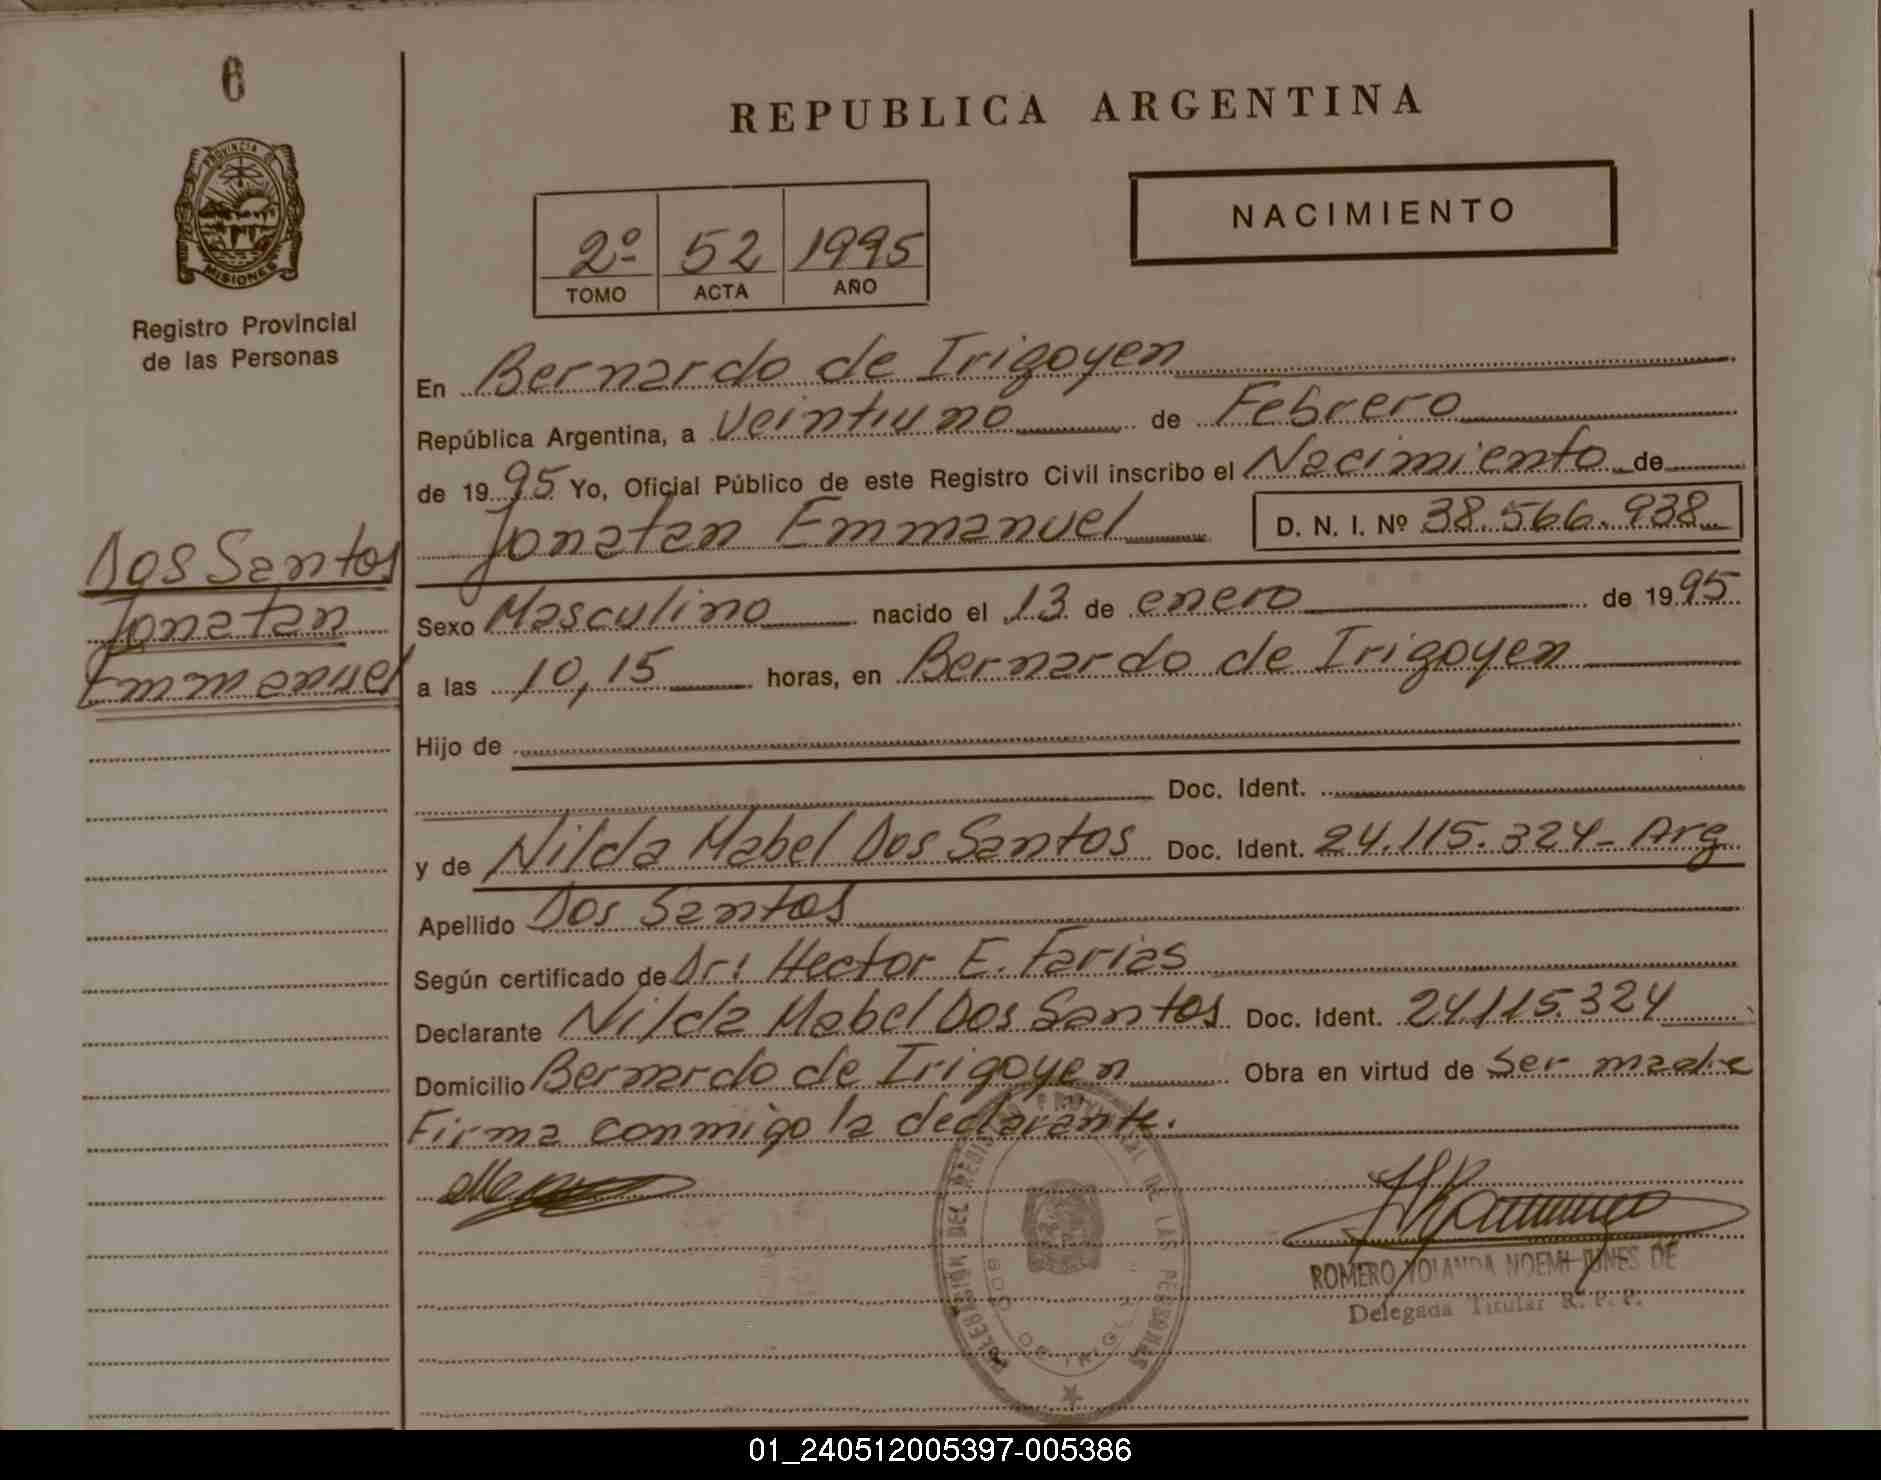 6
REPUBLICA ARGENTINA
PROVINCIA DE
MISIONES
Registro Provincial
de las Personas
NACIMIENTO
2º 52 1995
TOMO ACTA AÑO
En Bernardo de Irigoyen
República Argentina, a veintiuno de Febrero
de 1995 Yo, Oficial Público de este Registro Civil inscribo el Nacimiento de
Jonatan Emmanuel D. N. I. Nº 38.566.938
Dos Santos
Jonatan
Emmanuel
Sexo Masculino nacido el 13 de enero de 1995
a las 10,15 horas, en Bernardo de Irigoyen
Hijo de
Doc. Ident.
y de Nilda Mabel Dos Santos Doc. Ident. 24.115.324- Arg
Apellido Dos Santos
Según certificado de Dr: Hector E. Farias
Declarante Nilda Mabel Dos Santos Doc. Ident. 24.115.324
Domicilio Bernardo de Irigoyen Obra en virtud de ser madre
Firma conmigo la declarante.
DEL REGISTRO PROVINCIAL DE LAS PERSONAS
ROMERO YOLANDA NOEMI DE
Delegada Titular R. P. P.
01_240512005397-005386